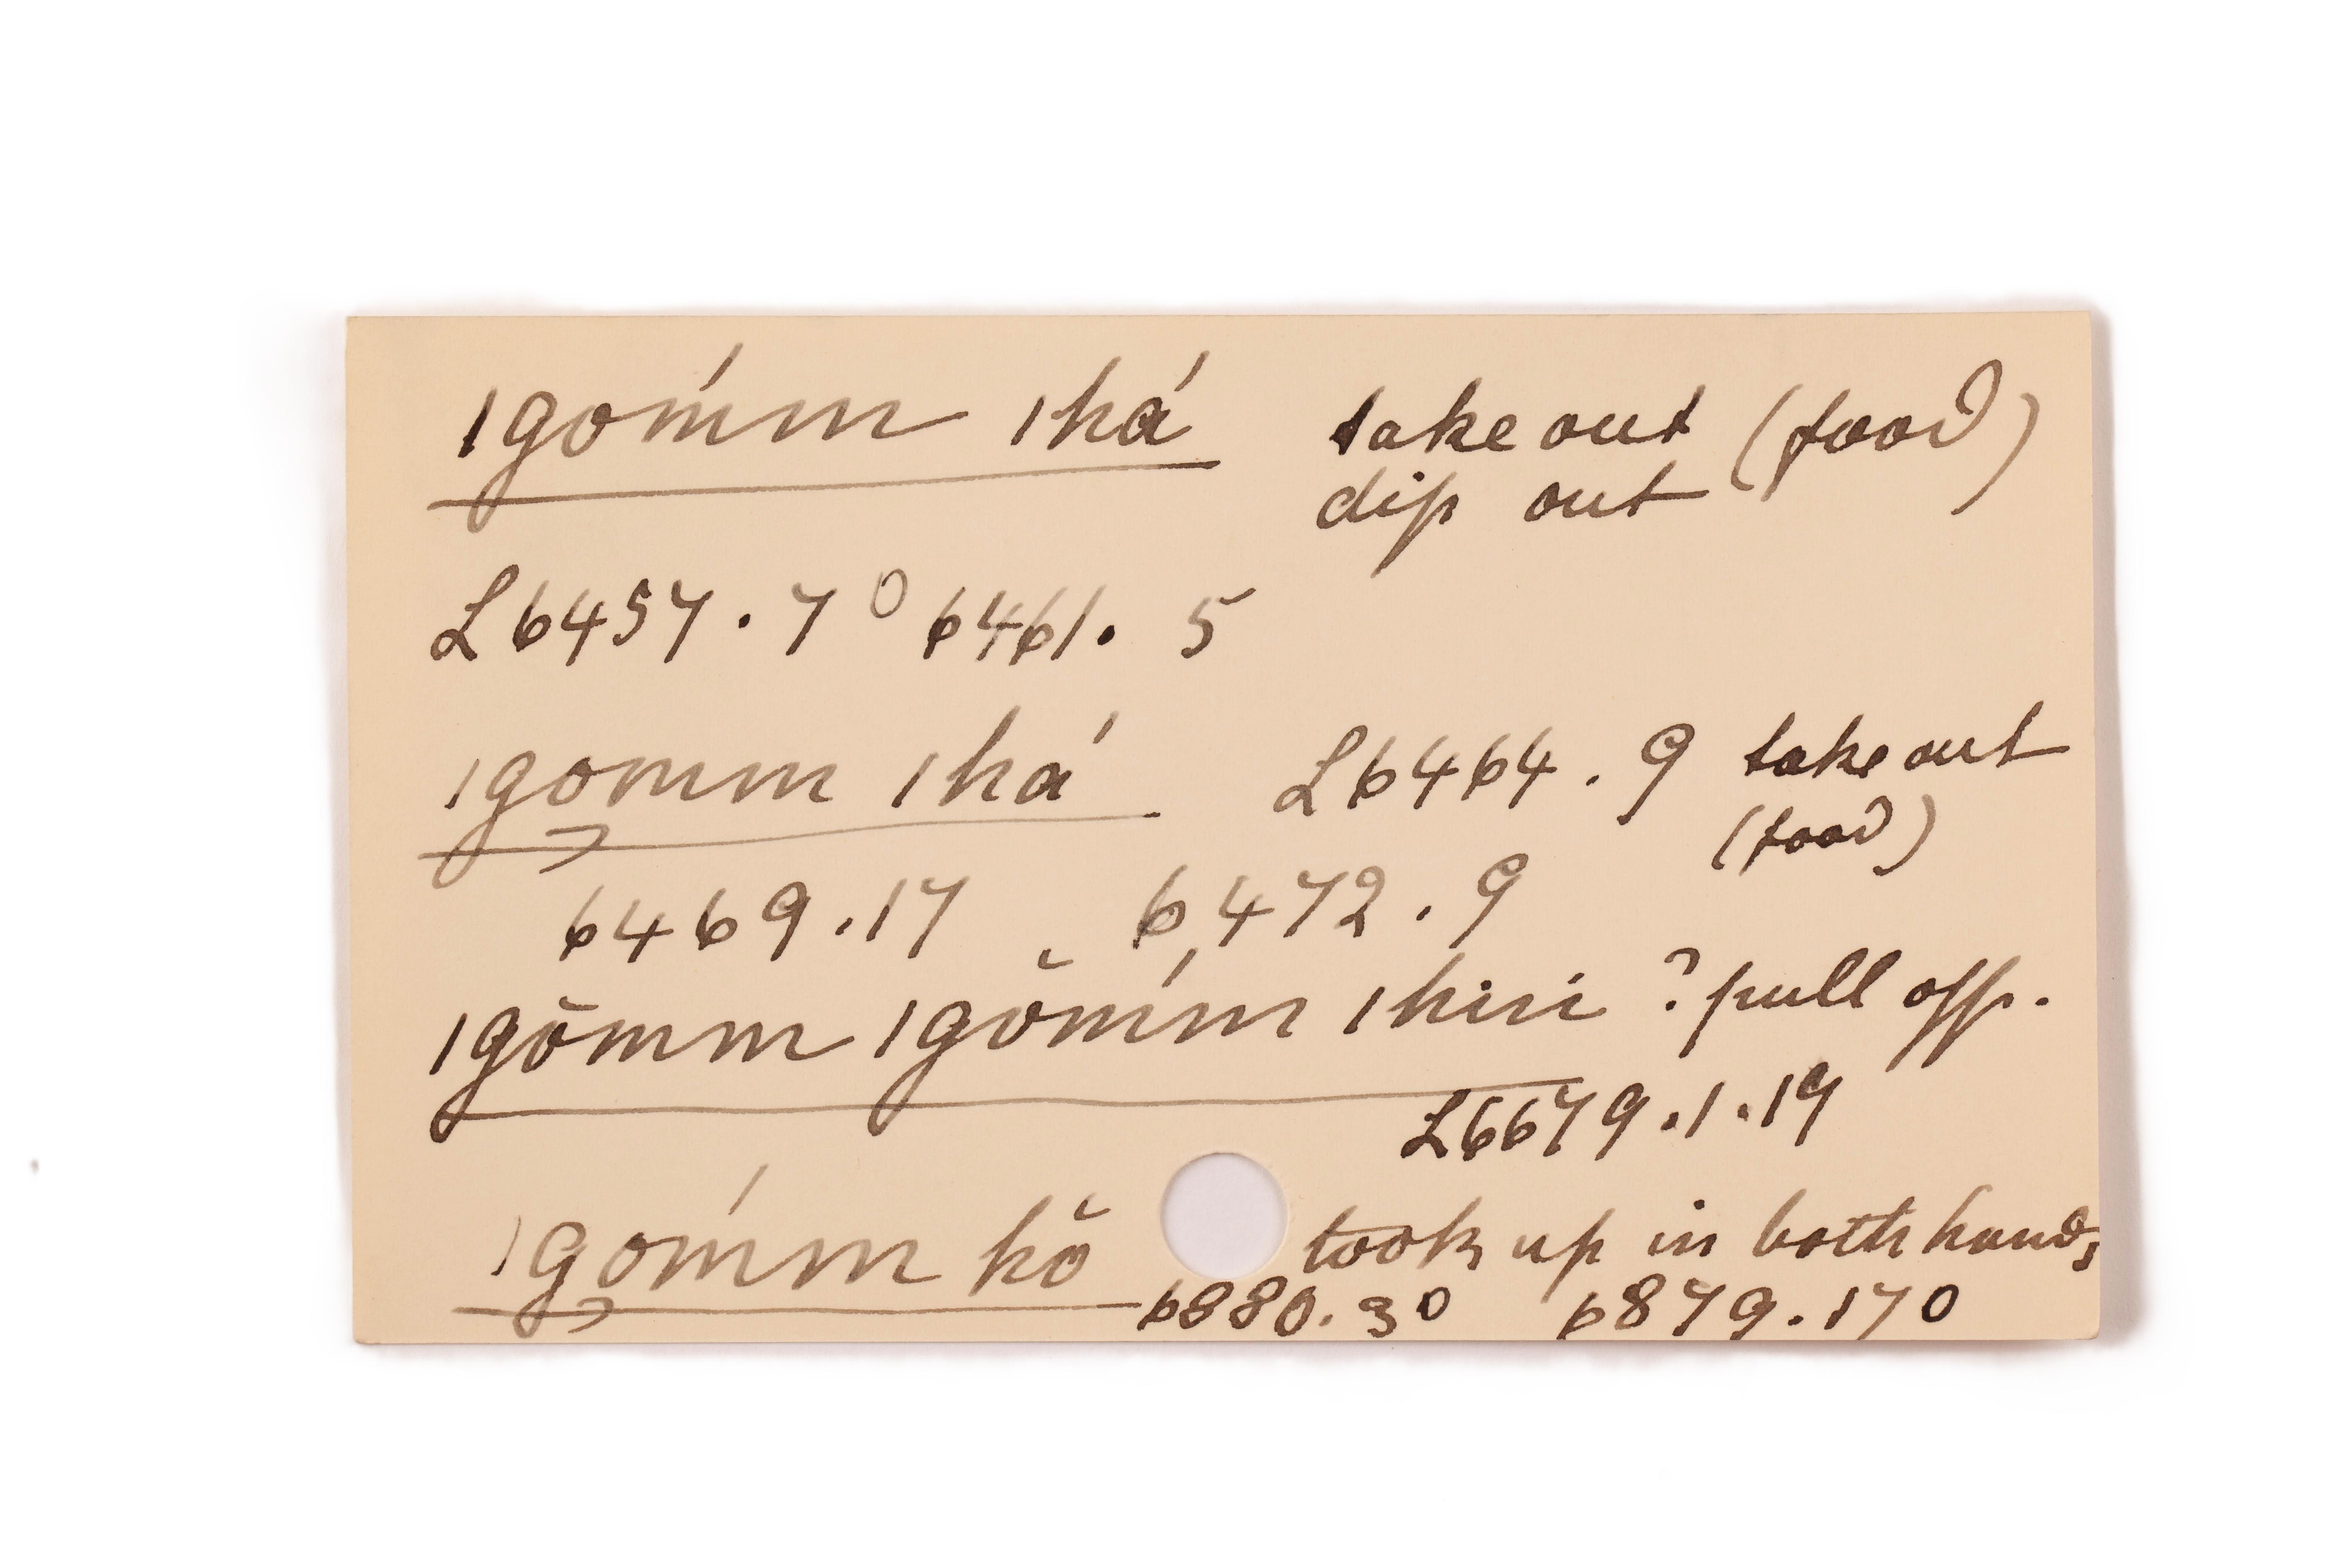 ıgom̄́m ıhá take out (food)
dip out
L6457.7⁰ 6461. 5
ıgomm ıhá L6464.9 take out
(food)
6469.17 6472.9
ıgŏmm ıgŏḿm ıhiri ? pull off.
L6679.1.19
ıgoḿm hŏ took up in both hands
6880.30 6879.170